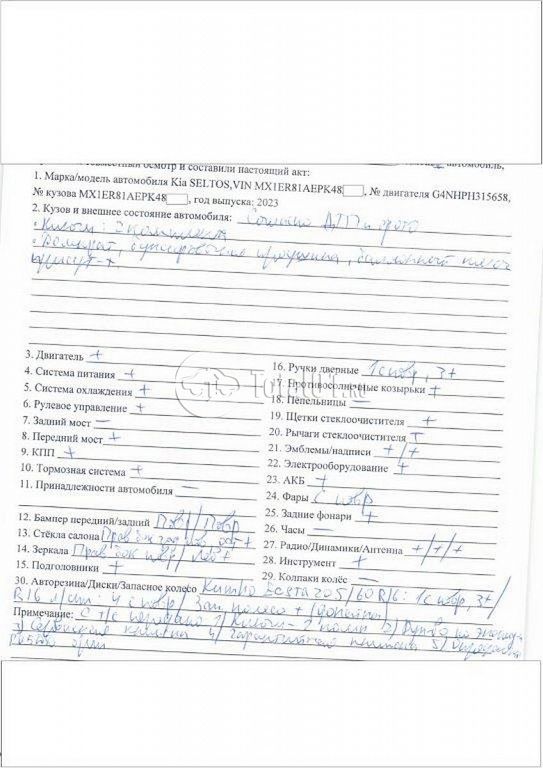 совместный осмотр и составили настоящий акт: автомобиль,
1. Марка/модель автомобиля Kia SELTOS,VIN MX1ER81AEPK48, № двигателя G4NHPH315658,
№ кузова MX1ER81AEPK48, год выпуска: 2023
2. Кузов и внешнее состояние автомобиля: Согласно ДТП и фото
• Ключи: 2 комплекта
• Домкрат, буксировочная проушина, баллонный ключ
3. Двигатель +
4. Система питания +
5. Система охлаждения +
6. Рулевое управление +
7. Задний мост —
8. Передний мост +
9. КПП +
10. Тормозная система +
11. Принадлежности автомобиля —
12. Бампер передний/задний Повр/Повр
13. Стёкла салона Прав бок
14. Зеркала Прав бок повр/лев+
15. Подголовники +
16. Ручки дверные 1с повр, 3+
17. Противосолнечные козырьки +
18. Пепельницы —
19. Щетки стеклоочистителя +
20. Рычаги стеклоочистителя +
21. Эмблемы/надписи +/+
22. Электрооборудование +
23. АКБ +
24. Фары с повр
25. Задние фонари +
26. Часы —
27. Радио/Динамики/Антенна +/+/+
28. Инструмент +
29. Колпаки колёс —
30. Авторезина/Диски/Запасное колесо 205/60 R16: 1с повр, 3+/
R16 4 с повр/ Зап колесо +
Примечание: С т/с передано 1) Ключи-2 2)
3) Сервисная книжка 4) гарантийная книжка 5)
TopAUT.ru